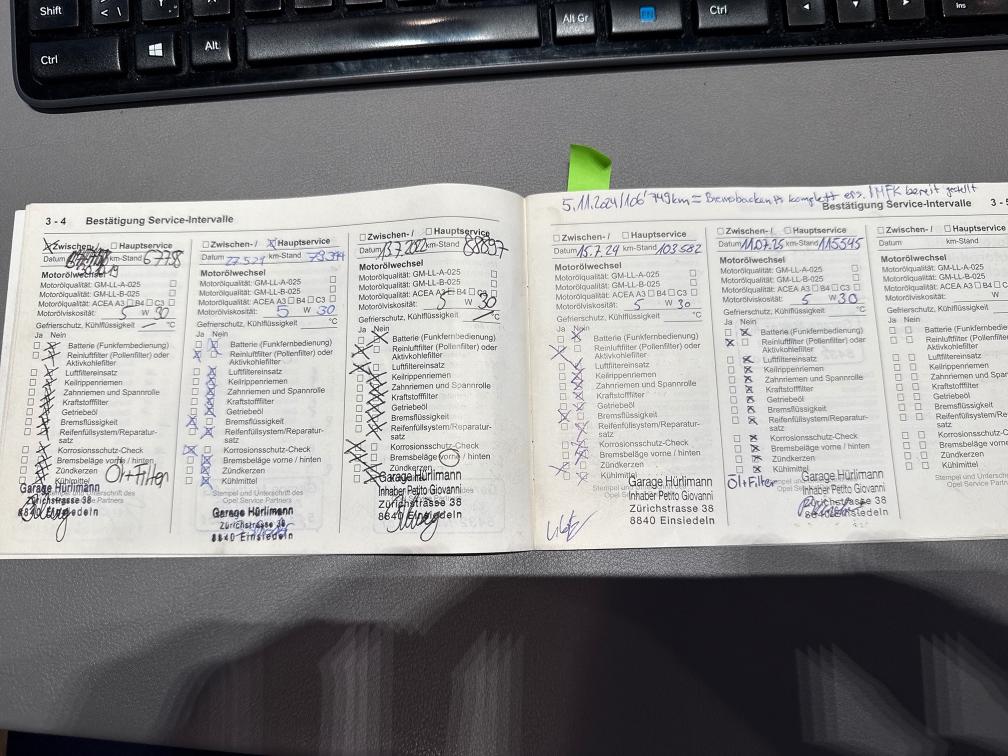 Shift
< \
Alt Gr
FN
Ctrl
Ins
Ctrl
Alt
3 - 4 Bestätigung Service-Intervalle
Zwischen- / Hauptservice
Datum km-Stand 67758
Motorölwechsel
Motorölqualität: GM-LL-A-025
Motorölqualität: GM-LL-B-025
Motorölqualität: ACEA A3 B4 C3
Motorölviskosität: 5 W 30
Gefrierschutz, Kühlflüssigkeit °C
Ja Nein
Batterie (Funkfernbedienung)
Reinluftfilter (Pollenfilter) oder
Aktivkohlefilter
Luftfiltereinsatz
Keilrippenriemen
Zahnriemen und Spannrolle
Kraftstofffilter
Getriebeöl
Bremsflüssigkeit
Reifenfüllsystem/Reparatur-
satz
Korrosionsschutz-Check
Bremsbeläge vorne / hinten
Zündkerzen
Kühlmittel
Öl+Filter
Stempel und Unterschrift des
Opel Service Partners
Garage Hürlimann
Zürichstrasse 38
8840 Einsiedeln
Zwischen- / Hauptservice
Datum km-Stand
Motorölwechsel
Motorölqualität: GM-LL-A-025
Motorölqualität: GM-LL-B-025
Motorölqualität: ACEA A3 B4 C3
Motorölviskosität: 5 W 30
Gefrierschutz, Kühlflüssigkeit °C
Ja Nein
Batterie (Funkfernbedienung)
Reinluftfilter (Pollenfilter) oder
Aktivkohlefilter
Luftfiltereinsatz
Keilrippenriemen
Zahnriemen und Spannrolle
Kraftstofffilter
Getriebeöl
Bremsflüssigkeit
Reifenfüllsystem/Reparatur-
satz
Korrosionsschutz-Check
Bremsbeläge vorne / hinten
Zündkerzen
Kühlmittel
Stempel und Unterschrift des
Opel Service Partners
Garage Hürlimann
Zürichstrasse 38
8840 Einsiedeln
Zwischen- / Hauptservice
Datum km-Stand 88897
Motorölwechsel
Motorölqualität: GM-LL-A-025
Motorölqualität: GM-LL-B-025
Motorölqualität: ACEA A3 B4 C3
Motorölviskosität: 5 W 30
Gefrierschutz, Kühlflüssigkeit °C
Ja Nein
Batterie (Funkfernbedienung)
Reinluftfilter (Pollenfilter) oder
Aktivkohlefilter
Luftfiltereinsatz
Keilrippenriemen
Zahnriemen und Spannrolle
Kraftstofffilter
Getriebeöl
Bremsflüssigkeit
Reifenfüllsystem/Reparatur-
satz
Korrosionsschutz-Check
Bremsbeläge vorne / hinten
Zündkerzen
Garage Hürlimann
Inhaber Petito Giovanni
Zürichstrasse 38
8840 Einsiedeln
5.11.2024/106'749km = komplett ers. / MFK bereit gestellt
Bestätigung Service-Intervalle 3 - 5
Zwischen- / Hauptservice
Datum 15.7.24 km-Stand 103582
Motorölwechsel
Motorölqualität: GM-LL-A-025
Motorölqualität: GM-LL-B-025
Motorölqualität: ACEA A3 B4 C3
Motorölviskosität: 5 W 30
Gefrierschutz, Kühlflüssigkeit °C
Ja Nein
Batterie (Funkfernbedienung)
Reinluftfilter (Pollenfilter) oder
Aktivkohlefilter
Luftfiltereinsatz
Keilrippenriemen
Zahnriemen und Spannrolle
Kraftstofffilter
Getriebeöl
Bremsflüssigkeit
Reifenfüllsystem/Reparatur-
satz
Korrosionsschutz-Check
Bremsbeläge vorne / hinten
Zündkerzen
Kühlmittel
Garage Hürlimann
Inhaber Petito Giovanni
Zürichstrasse 38
8840 Einsiedeln
Zwischen- / Hauptservice
Datum 11.07.25 km-Stand 115545
Motorölwechsel
Motorölqualität: GM-LL-A-025
Motorölqualität: GM-LL-B-025
Motorölqualität: ACEA A3 B4 C3
Motorölviskosität: 5 W 30
Gefrierschutz, Kühlflüssigkeit °C
Ja Nein
Batterie (Funkfernbedienung)
Reinluftfilter (Pollenfilter) oder
Aktivkohlefilter
Luftfiltereinsatz
Keilrippenriemen
Zahnriemen und Spannrolle
Kraftstofffilter
Getriebeöl
Bremsflüssigkeit
Reifenfüllsystem/Reparatur-
satz
Korrosionsschutz-Check
Bremsbeläge vorne / hinten
Zündkerzen
Kühlmittel
Öl+Filter
Garage Hürlimann
Inhaber Petito Giovanni
Zürichstrasse 38
8840 Einsiedeln
Zwischen- / Hauptservice
Datum km-Stand
Motorölwechsel
Motorölqualität: GM-LL-A-025
Motorölqualität: GM-LL-B-025
Motorölqualität: ACEA A3
Motorölviskosität: W
Gefrierschutz, Kühlflüssigkeit
Ja Nein
Batterie (Funkfernbedienung)
Reinluftfilter (Pollenfilter)
Aktivkohlefilter
Luftfiltereinsatz
Keilrippenriemen
Zahnriemen und Spannrolle
Kraftstofffilter
Getriebeöl
Bremsflüssigkeit
satz
Korrosionsschutz-Check
Zündkerzen
Kühlmittel
Stempel und Unterschrift des